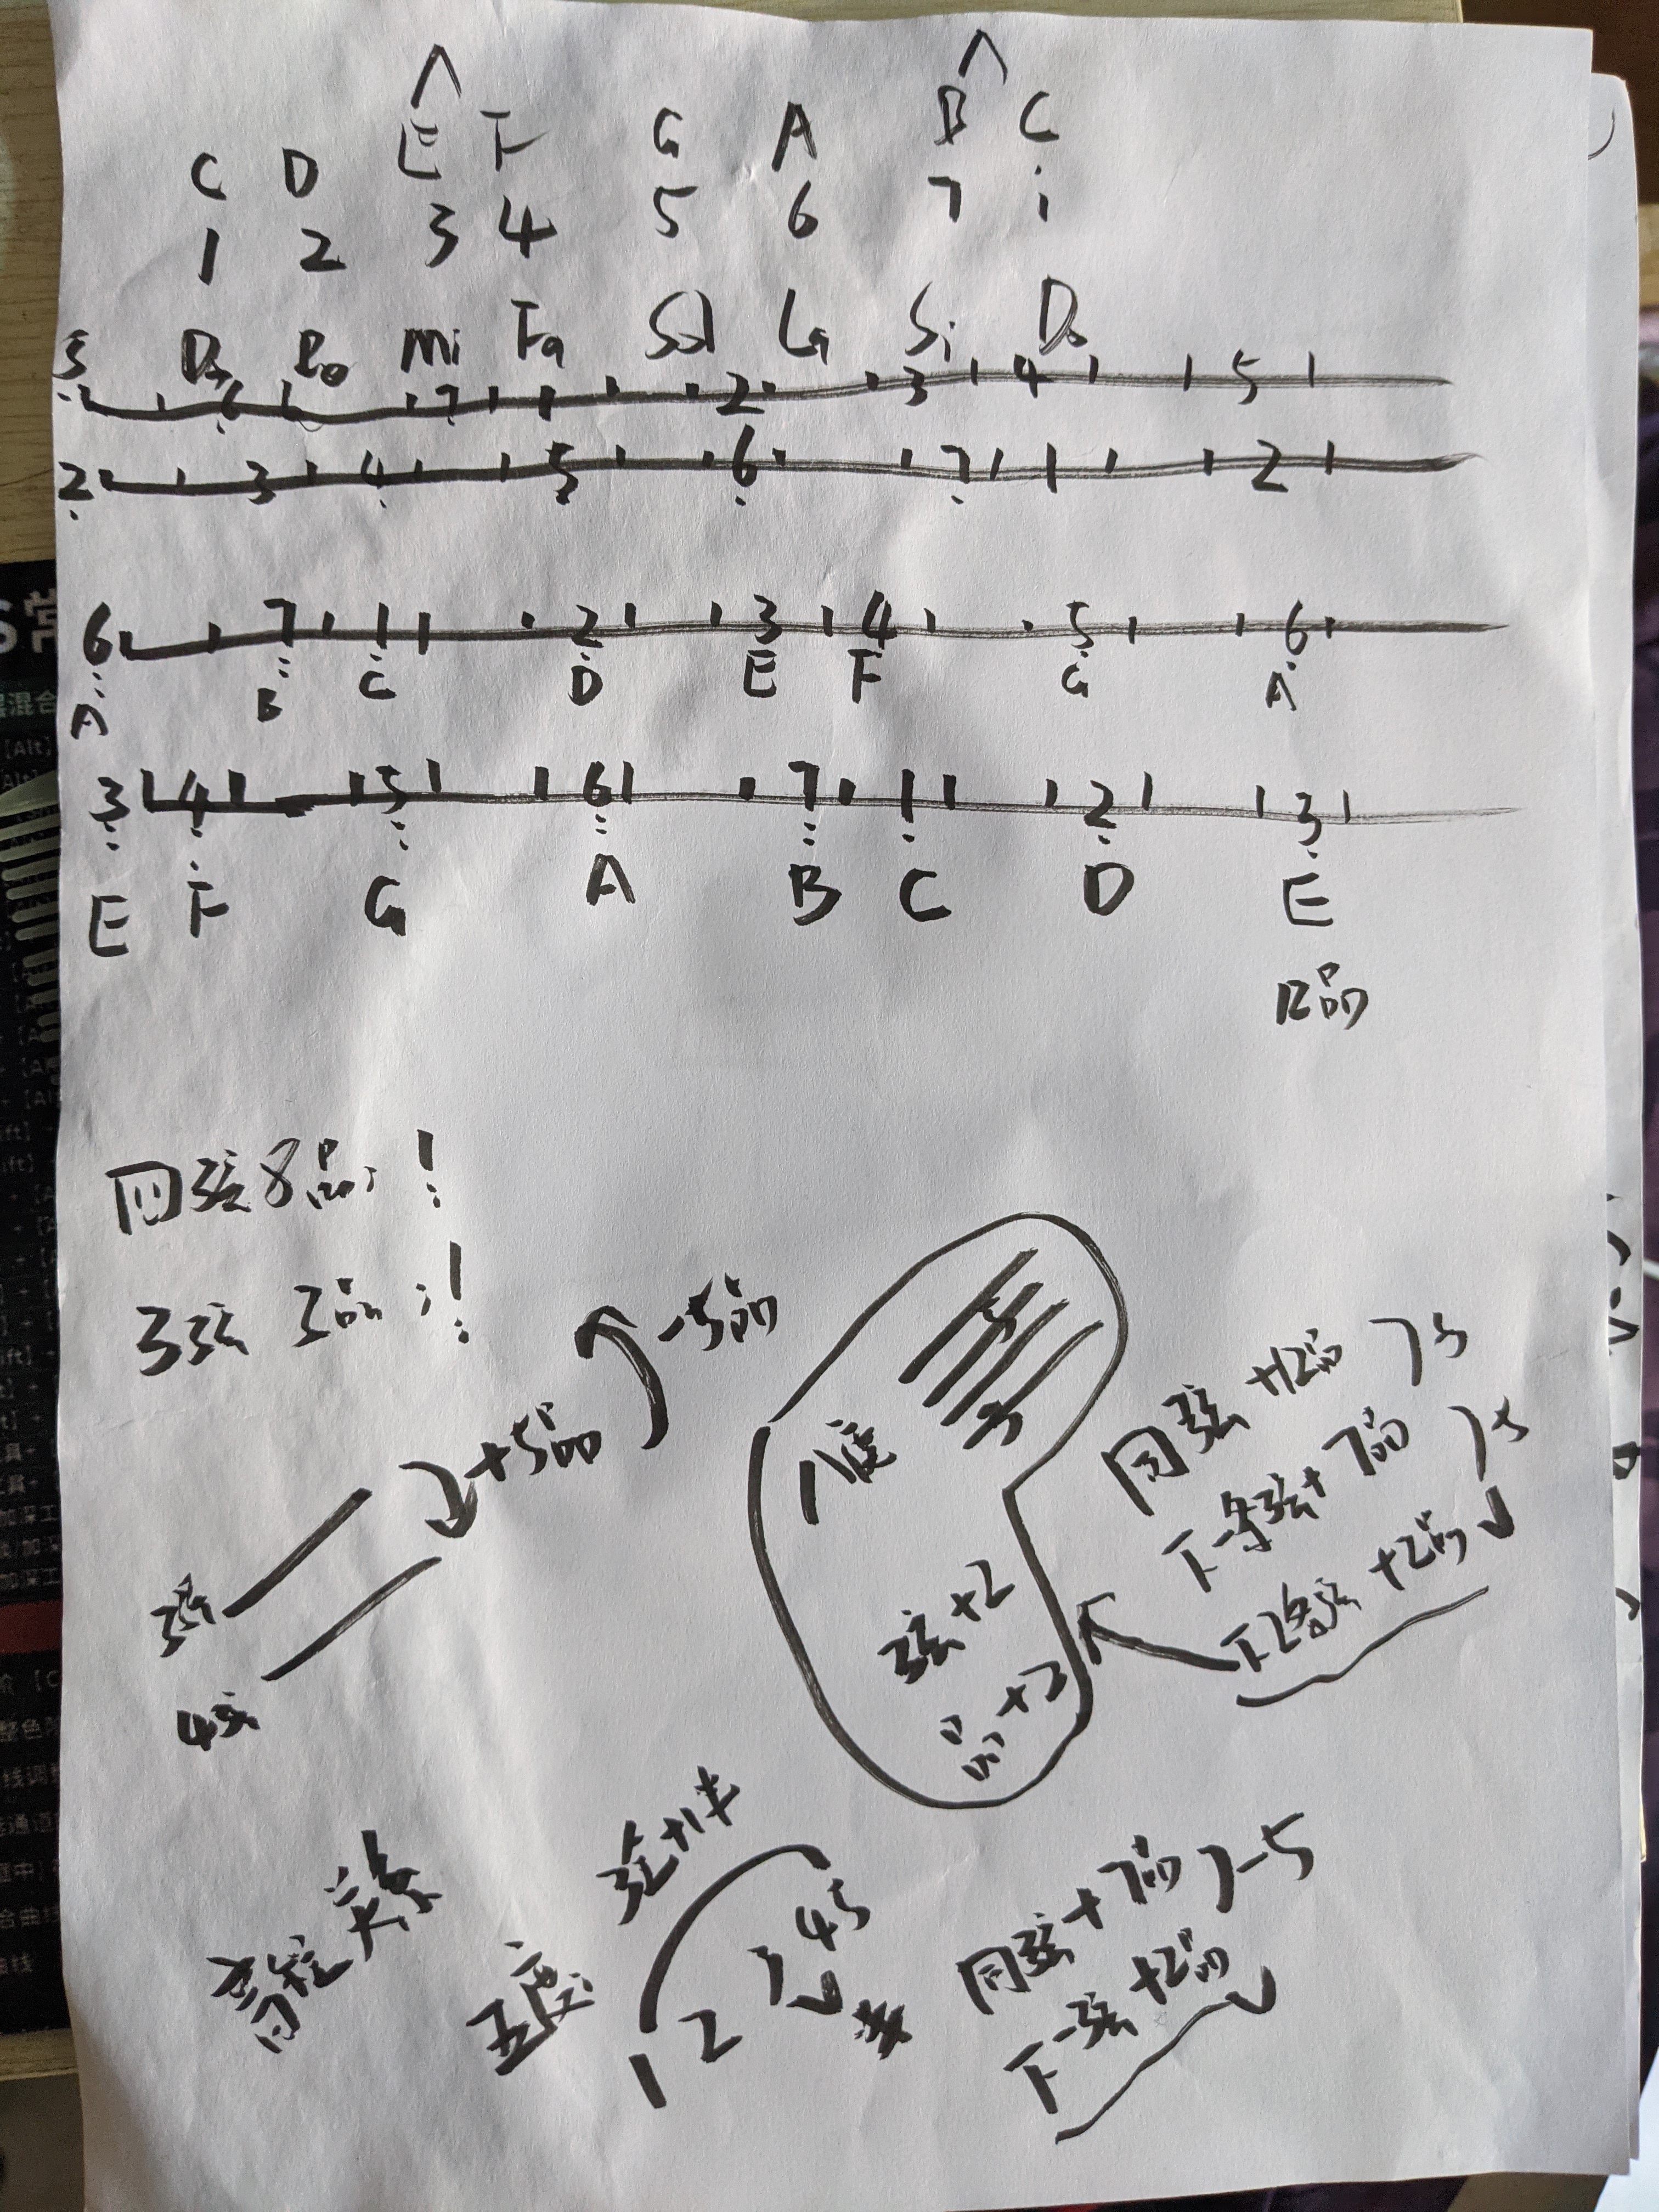 C D E F G A B C
1 2 3 4 5 6 7 i
Do Re Mi Fa Sol La Si Do
5 6 7 1 2 3 4 5
2 3 4 5 6 7 1 2
6 7 1 2 3 4 5 6
A B C D E F G A
3 4 5 6 7 1 2 3
E F G A B C D E
12品
同弦8品:!
3弦 3品:!
-5品
+5品
3弦
4弦
八度
弦+2
品+2
同弦 +12品 )-5
下一条弦+7品 )-5
下2条弦 +2品
音程关系
五度
弦+1
1 2 3 4 5
同弦+7品 )-5
下一弦+2品
[Alt]